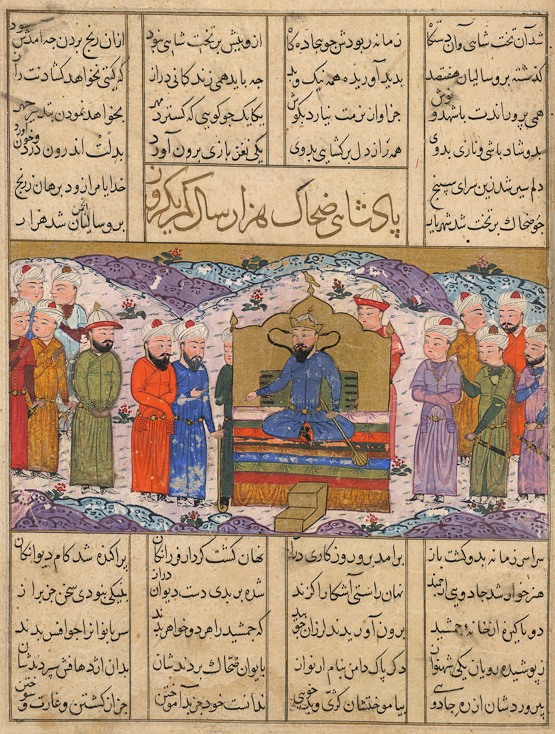 شد آن تخت شاهی و آن دستگاه زمانه ربودش چو بیجاده کاه ازو بیش بر تخت شاهی نبود از آن رنج بردن چه آمدش سود
گذشته برو سالیان هفتصد پدید آوریده همه نیک و بد چه باید همی زندگانی دراز که گیتی نخواهد گشادنت راز
همی پروراندت با شهد و نوش جز آواز نرمت نیارد بگوش یکایک چو گویی که گسترد مهر بخواهد نمودن به بد نیز چهر
بدو شاد باشی و نازی بدوی همه راز دل برگشایی بدوی یکی نغز بازی برون آورد بدلت اندرون درد و خون آورد
دلم سیر شد زین سرای سپنج خدایا مرا زود برهان ز رنج
پادشاهی ضحاک هزار سال کم یک روز
چو ضحاک بر تخت شد شهریار برو سالیان انجمن شد هزار
سراسر زمانه بدو گشت باز برآمد برین روزگاری دراز نهان گشت کردار فرزانگان پراکنده شد کام دیوانگان
هنر خوار شد جادویی ارجمند نهان راستی آشکارا گزند شده بر بدی دست دیوان دراز بنیکی نبودی سخن جز براز
دو پاکیزه از خانه جمشید برون آوریدند لرزان چو بید که جمشید را هر دو خواهر بدند سر بانوان را چو افسر بدند
ز پوشیده رویان یکی دگر پاک دامن بنام ارنواز بایوان ضحاک بردندشان بدان اژدهافش سپردندشان
بپروردشان از ره جادوی بیاموختشان کژی و بدخوی ندانست خود جز بد آموختن جز از کشتن و غارت و سوختن